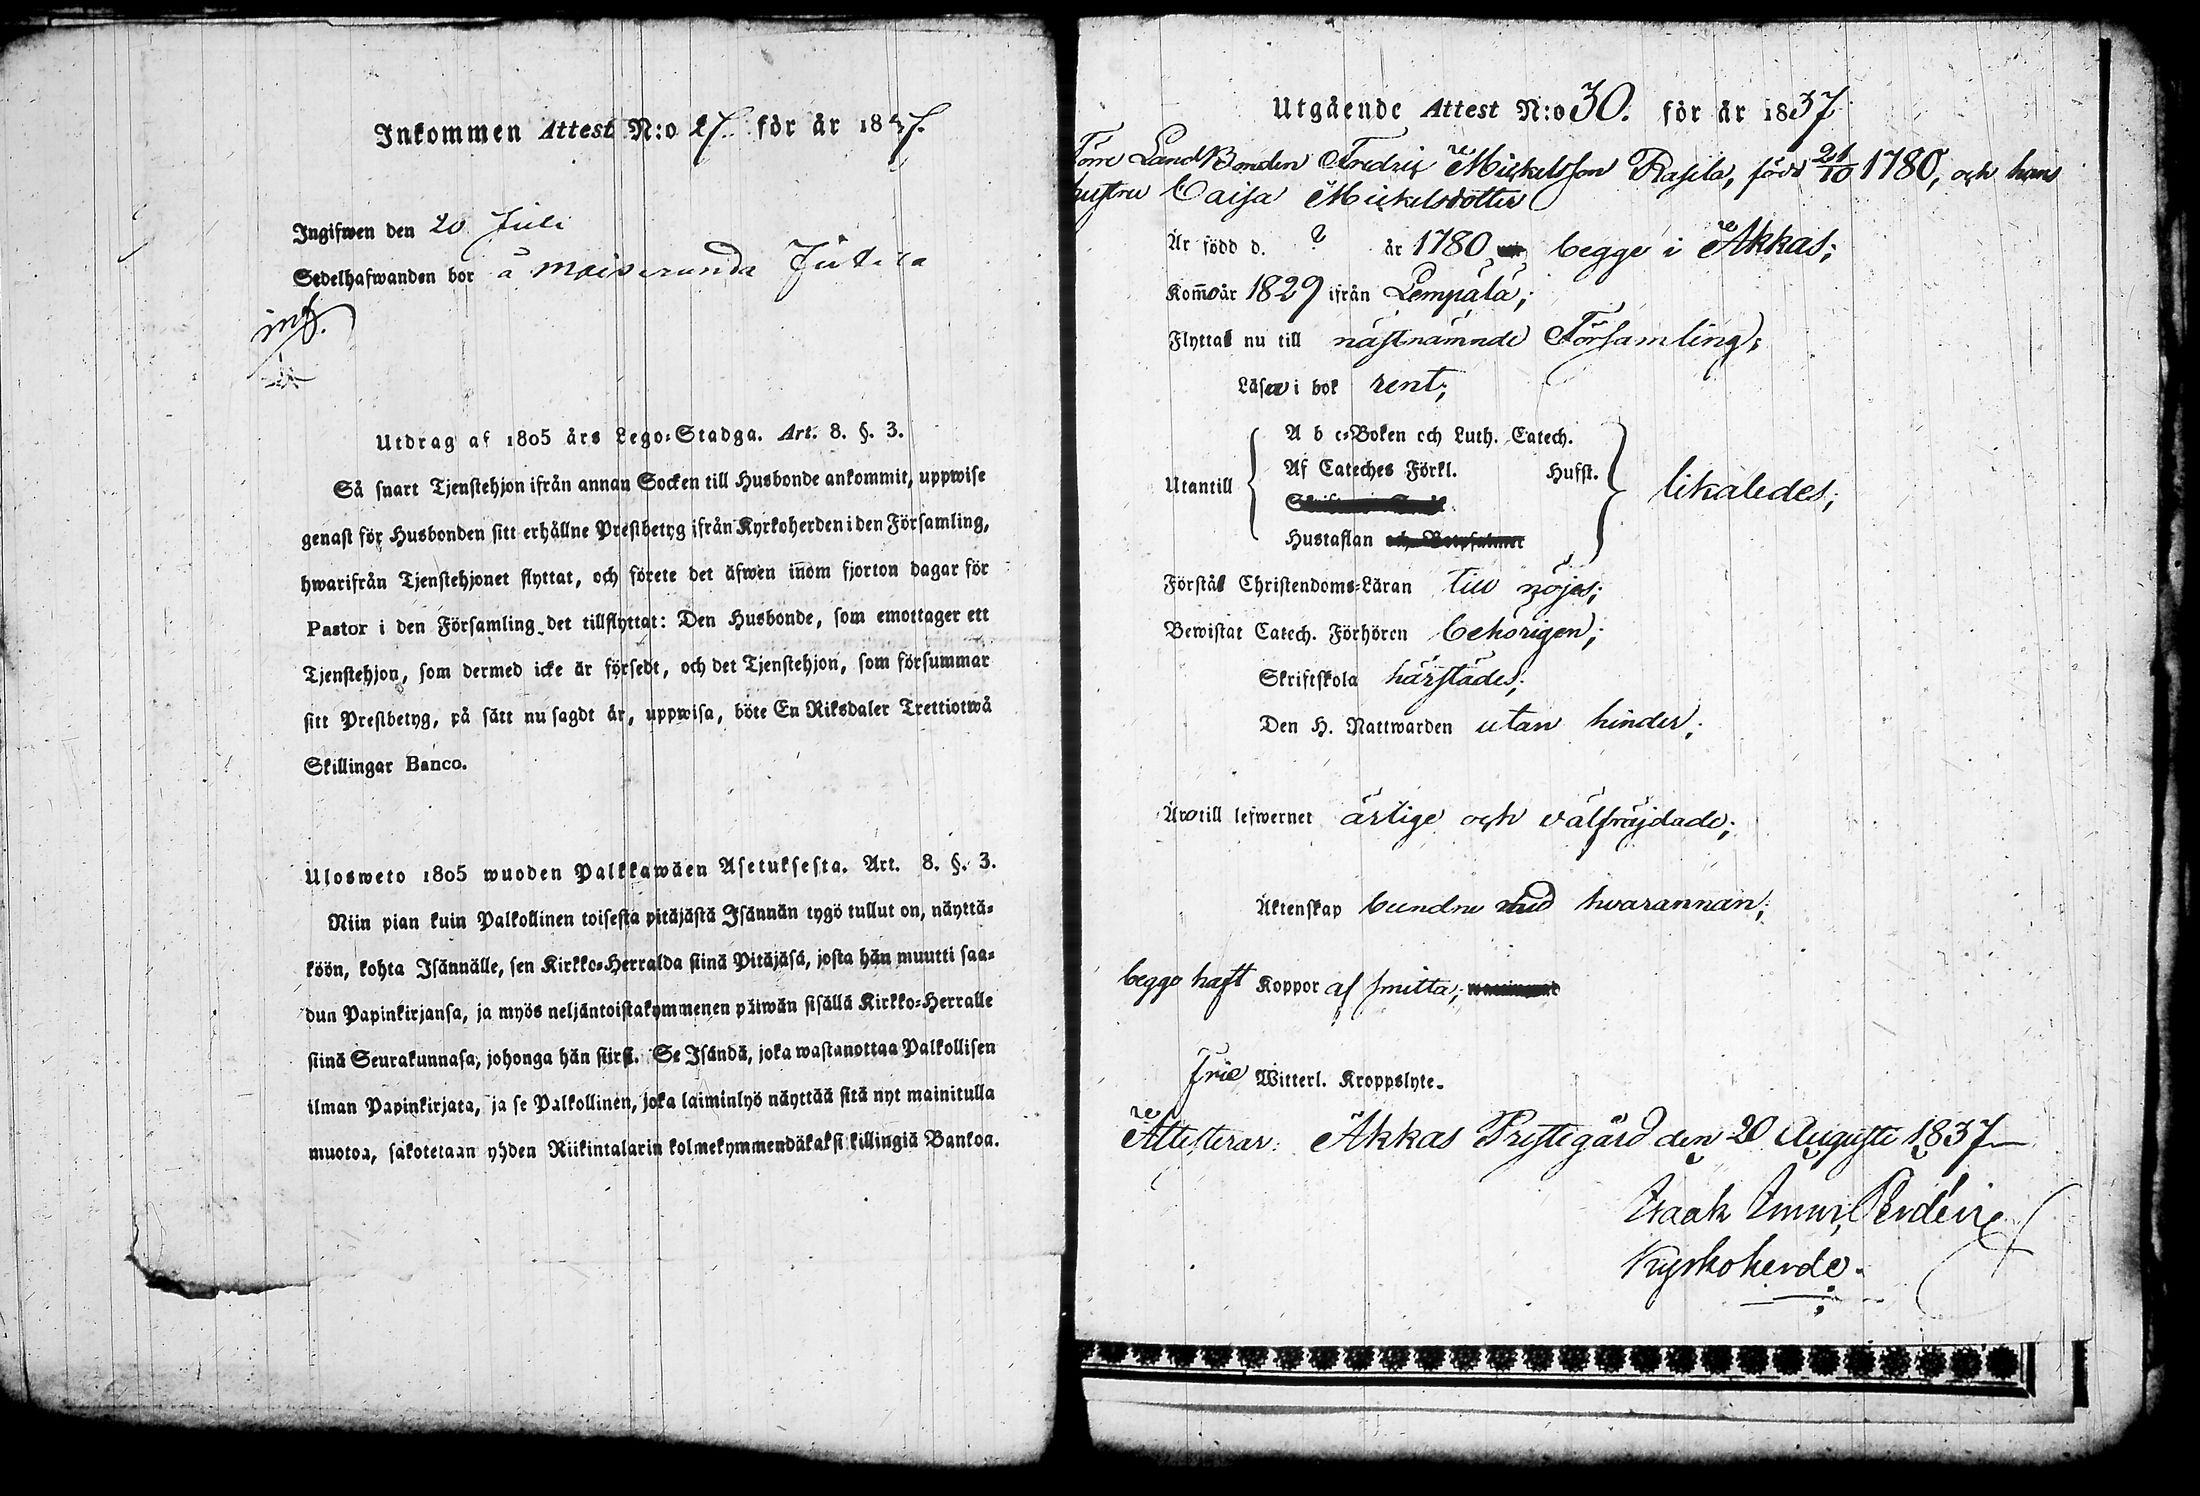 Inkommen Attest N:o 27. för år 1837.
Ingifwen den 20 Juli
Sedelhafwanden bor å Maiserunda Jutila
inf.
Utdrag af 1805 års Lego-Stadga. Art. 8. §. 3.
Så snart Tjenstehjon ifrån annan Socken till Husbonde ankommit, uppwise
genast för Husbonden sitt erhållne Prestbetyg ifrån Kyrkoherden i den Församling,
hwarifrån Tjenstehjonet flyttat, och förete det äfwen inom fjorton dagar för
Pastor i den Församling det tillflyttat: Den Husbonde, som emottager ett
Tjenstehjon, som dermed icke är försedt, och det Tjenstehjon, som försummar
sitt Prestbetyg, på sätt nu sagdt är, uppwisa, böte En Riksdaler Trettiotwå
Skillingar Banco.
Ulosweto 1805 wuoden Palkkawäen Asetuksesta. Art. 8. §. 3.
Niin pian kuin Palkollinen toisesta pitäjästä Isännän tygö tullut on, näyttä-
köön, kohta Isännälle, sen Kirkko-Herralda siinä Pitäjäsä, josta hän muutti saa-
dun Papinkirjansa, ja myös neljäntoistakymmenen päiwän sisällä Kirkko-Herralle
siinä Seurakunnasa, johonga hän siirsi. Se Isändä, joka wastanottaa Palkollisen
ilman Papinkirjata, ja se Palkollinen, joka laiminlyö näyttää sitä nyt mainitulla
muotoa, sakotetaan yhden Riikintalarin kolmekymmendäkaksi killingiä Bankoa.
Utgående Attest N:o 30. för år 1837
Torre LandBonden Fredric Mickelsson Rasila, född 21/10 1780, och hans
hustru Caisa Mickelsdotter
Är född d. ? år 1780 begge i Akkas;
Kommo år 1829 ifrån Lempäla;
Flytta nu till nästnämnde Församling;
Läsa i bok rent;
Utantill
A b c-Boken och Luth. Catech.
Af Cateches Förkl. Husst.
Hustaflan
likaledes;
Förstå Christendoms-Läran till nöjes;
Bewistat Catech. Förhören behörigen;
Skriftskola härstädes;
Den H. Nattwarden utan hinder;
Äro till lefwernet ärlige och välfräjdade;
Äktenskap bundne med hvarannan;
begge haft Koppor af smitta;
Frie Witterl. Kroppslyte.
Attesterar: Akkas Prestegård den 20 Augusti 1837
Isaak Perdén
Kyrkoherde.